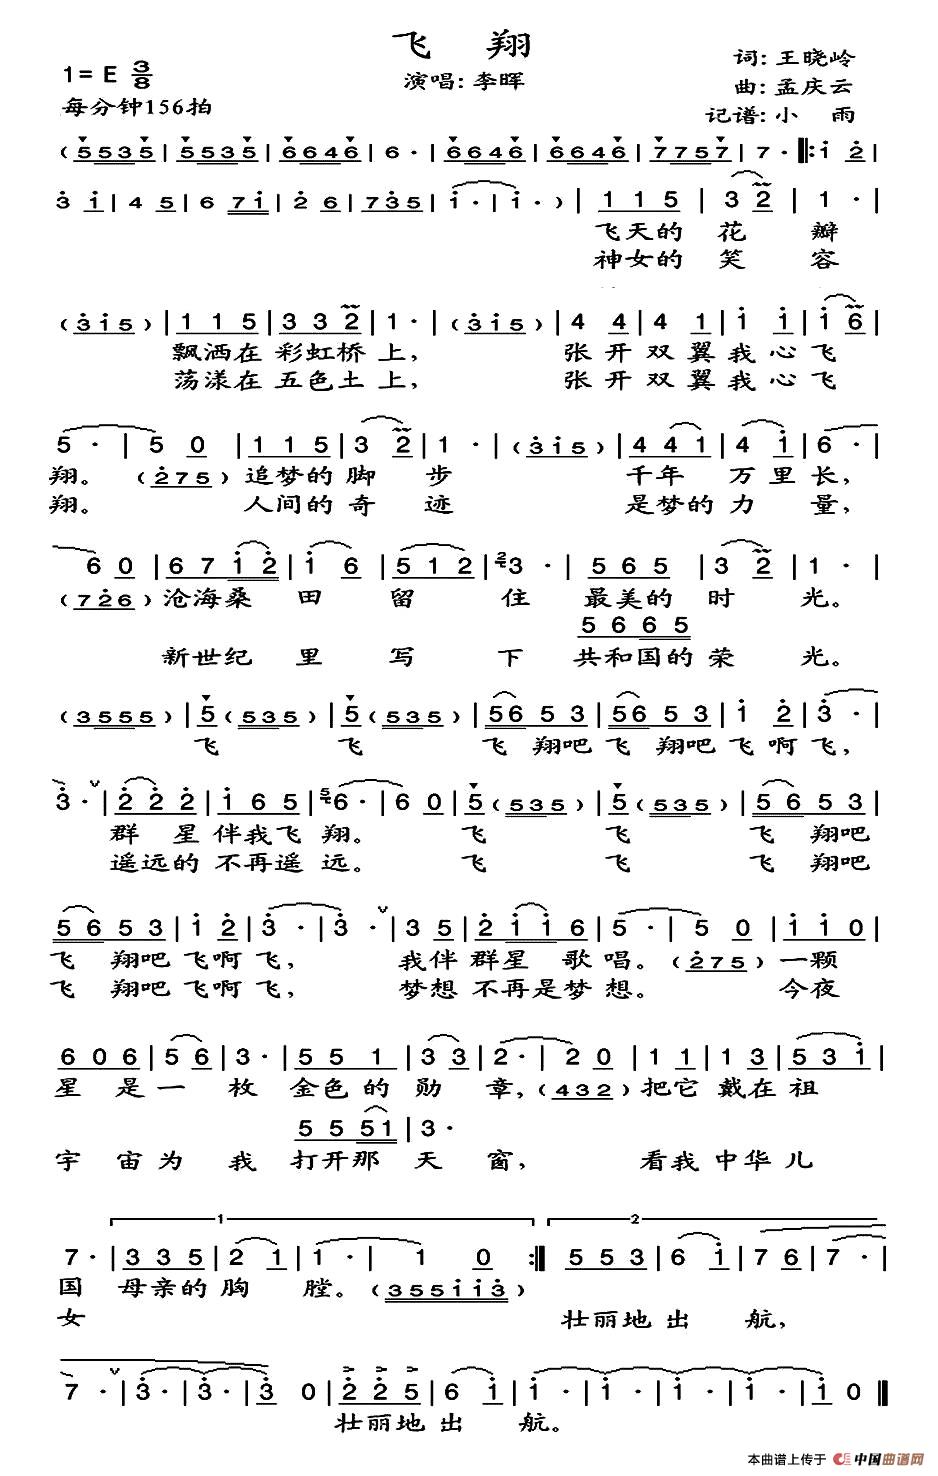 飞 翔
1= E 3/8
每分钟156拍
演唱: 李晖
词: 王晓岭
曲: 孟庆云
记谱: 小 雨
( 5 5 3 5 | 5 5 3 5 | 6 6 4 6 | 6 · | 6 6 4 6 | 6 6 4 6 | 7 7 5 7 | 7 · |: i 2 |
3 i | 4 5 | 6 7 i | 2 6 | 7 3 5 | i · | i · ) | 1 1 5 | 3 2 | 1 · |
飞天的 花 瓣
神女的 笑 容
( 3 i 5 ) | 1 1 5 | 3 3 2 | 1 · | ( 3 i 5 ) | 4 4 | 4 1 | i i | i 6 |
飘洒在 彩虹桥 上, 张 开 双 翼 我 心 飞
荡漾在 五色土 上, 张 开 双 翼 我 心 飞
5 · | 5 0 | 1 1 5 | 3 2 | 1 · | ( 3 i 5 ) | 4 4 1 | 4 i | 6 · |
翔。 ( 2 7 5 ) 追梦的 脚 步 千年 万 里 长,
翔。 人间的 奇 迹 是梦的 力 量,
6 0 | 6 7 i 2 | i 6 | 5 1 2 | 2 3 · | 5 6 5 | 3 2 | 1 · |
( 7 2 6 ) 沧海桑 田 留 住 最美的 时 光。
5 6 6 5
新世纪 里 写 下 共和国的 荣 光。
( 3 5 5 5 ) | 5 ( 5 3 5 ) | 5 ( 5 3 5 ) | 5 6 5 3 | 5 6 5 3 | i 2 | 3 · |
飞 飞 飞 翔吧 飞 翔吧 飞 啊 飞,
3 · | 2 2 2 | i 6 5 | 5 6 · | 6 0 | 5 ( 5 3 5 ) | 5 ( 5 3 5 ) | 5 6 5 3 |
群 星 伴我飞 翔。 飞 飞 飞 翔吧
遥远的 不再遥 远。 飞 飞 飞 翔吧
5 6 5 3 | i 2 | 3 · | 3 · | 3 5 | 2 i i 6 | 5 · | 5 0 | i i 0 |
飞 翔吧 飞啊 飞, 我伴 群星 歌 唱。 ( 2 7 5 ) 一颗
飞 翔吧 飞啊 飞, 梦想 不再是梦 想。 今夜
6 0 6 | 5 6 | 3 · | 5 5 1 | 3 3 | 2 · | 2 0 | 1 1 | 1 3 | 5 3 i |
星 是 一 枚 金色的 勋 章, ( 4 3 2 ) 把它 戴在 祖
5 5 5 1 | 3 ·
宇 宙 为 我 打开那 天 窗, 看我 中华 儿
1 2
7 · | 3 3 5 | 2 1 | 1 · | 1 0 :| 5 5 3 | 6 i | 7 6 | 7 · |
国 母亲的 胸 膛。 ( 3 5 5 i i 3 )
女 壮丽地 出 航,
7 · | 3 · | 3 · | 3 0 | 2 2 5 | 6 i | i · | i · | i · | i · | i 0 ‖
壮丽地 出 航。
本曲谱上传于 中国曲谱网